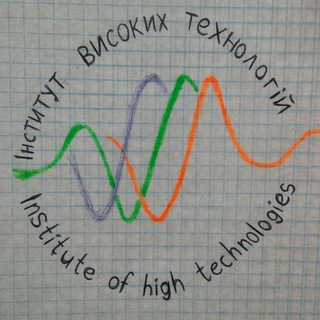 Інститут високих технологій
Institute of high technologies